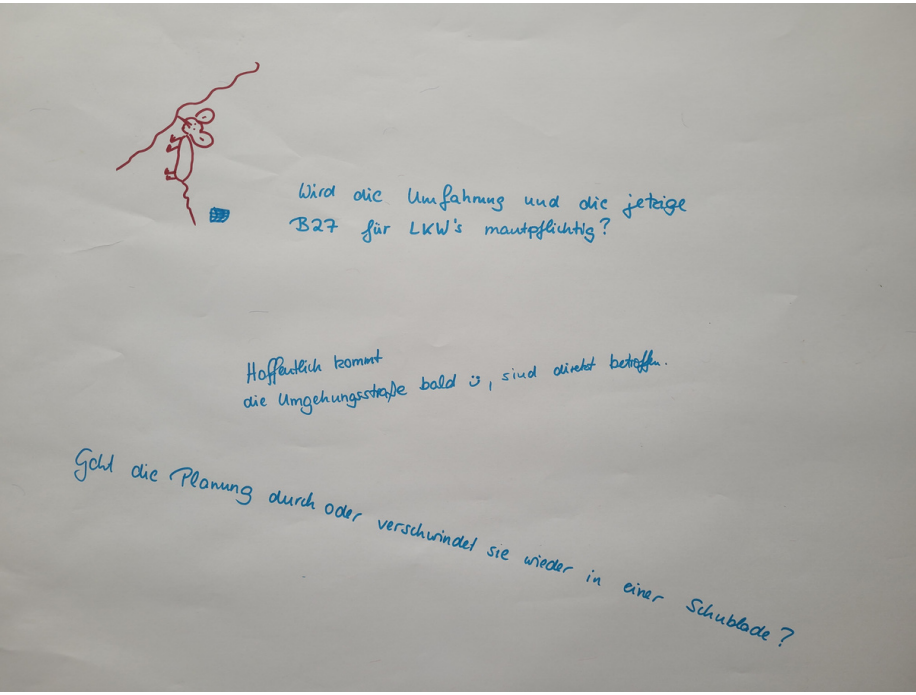 Wird die Umfahrung und die jetzige
B27 für LKW's mautpflichtig?
Hoffentlich kommt
die Umgehungsstraße bald, sind direkt betroffen.
Geht die Planung durch oder verschwindet sie wieder in einer Schublade?